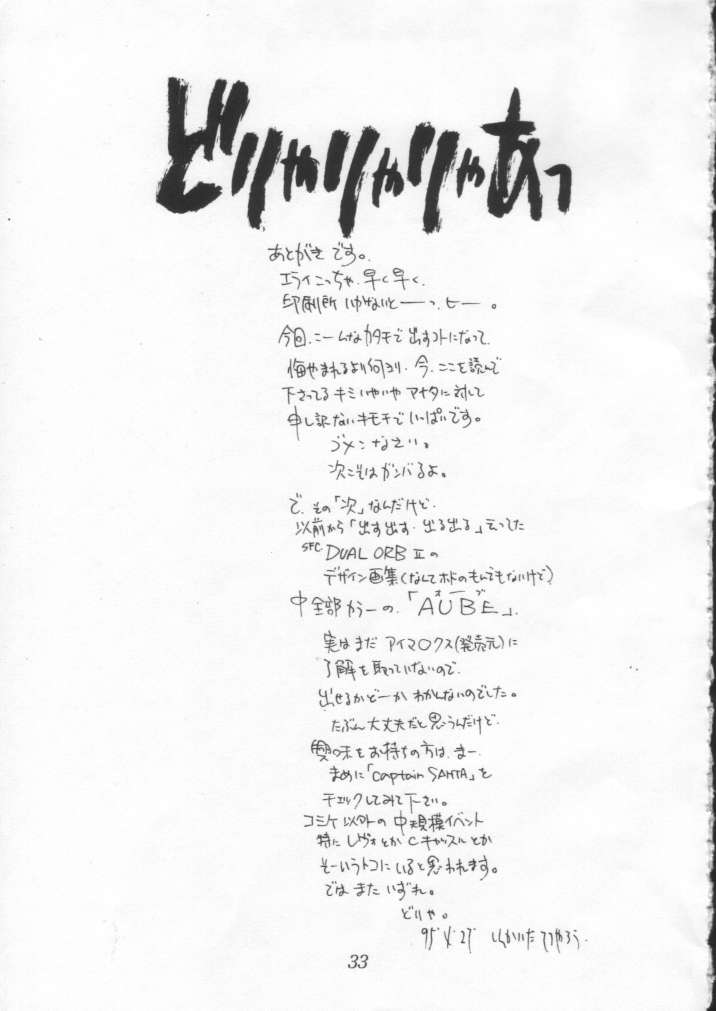 どりゃりゃりゃあっ
あとがきです。
エライこっちゃ、早く早く、
印刷所いかないとーーっ、ヒー。
今回、こーんなカタチで出すコトになって、
悔やまれるより何より、今、ここを読んで
下さってるキミいやいやアナタに対して
申し訳ないキモチでいっぱいです。
ゴメンなさい。
次こそはガンバるよ。
で、その「次」なんだけど、
以前から「出す出す、出る出る」云ってた
SFC DUAL ORB Ⅱの
デザイン画集(なんてホドのもんでもないけど)
中全部カラーの、「AUBE」、
オーブ
実はまだアイマ〇クス(発売元)に
了解を取っていないので、
出せるかどーかわかんないのでした。
たぶん大丈夫だと思うんだけど、
興味をお持ちの方は、まー、
まめに「Captain SANTA」を
チェックしてみて下さい。
コミケ以外の中規模イベント
特にレヴォとかCキャッスルとか
そーいうトコにいると思われます。
ではまたいずれ。
どりゃ。
95' 4' 27'
33